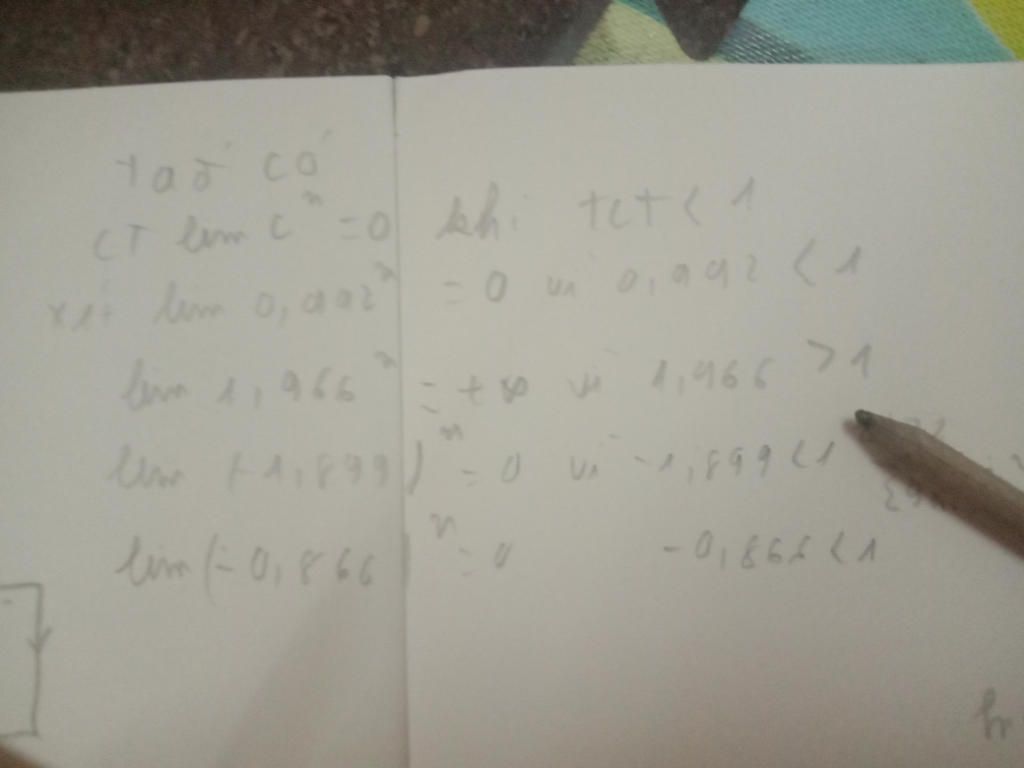 ta có
CT lim C^n = 0 khi |C| < 1
xét lim 0,992^n = 0 vì 0,992 < 1
lim 1,966^n = +∞ vì 1,966 > 1
lim (-1,899)^n = 0 vì -1,899 < 1
lim (-0,866)^n = 0 -0,866 < 1